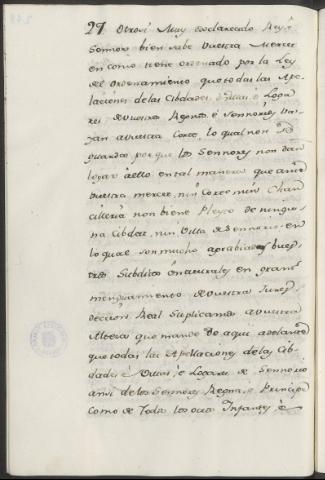 29 Otrosi Muy esclarecido Rey é
Sennor bien sabe Vuestra Merced
en como tiene ordenado por la Ley
del Ordenamiento que todas las Ape
laciones de las Cibdades é Villas é Logar
res de vuestros Regnos é Sennorios va
yan a vuestra Corte, lo qual non se
guarda por que los Sennores non dan
logar á ello en tal manera que ante
vuestra merced, nin Corte nin Chan
cilleria non viene Pleyto de ningu
na Cibdat, nin Villa de Sennorios en
lo qual son mucho agrabiados vues
tros Subditos é naturales en grand
menguamiento de vuestra Juris
deccion Real Suplicamos a vuestra
Alteza que mande de aqui adelante
que todas las Apellaciones de las Cib
dades é Villas é Logares de Sennorio
ansi de los Sennores Regna, é Principe
como de todos los otros Infantes é